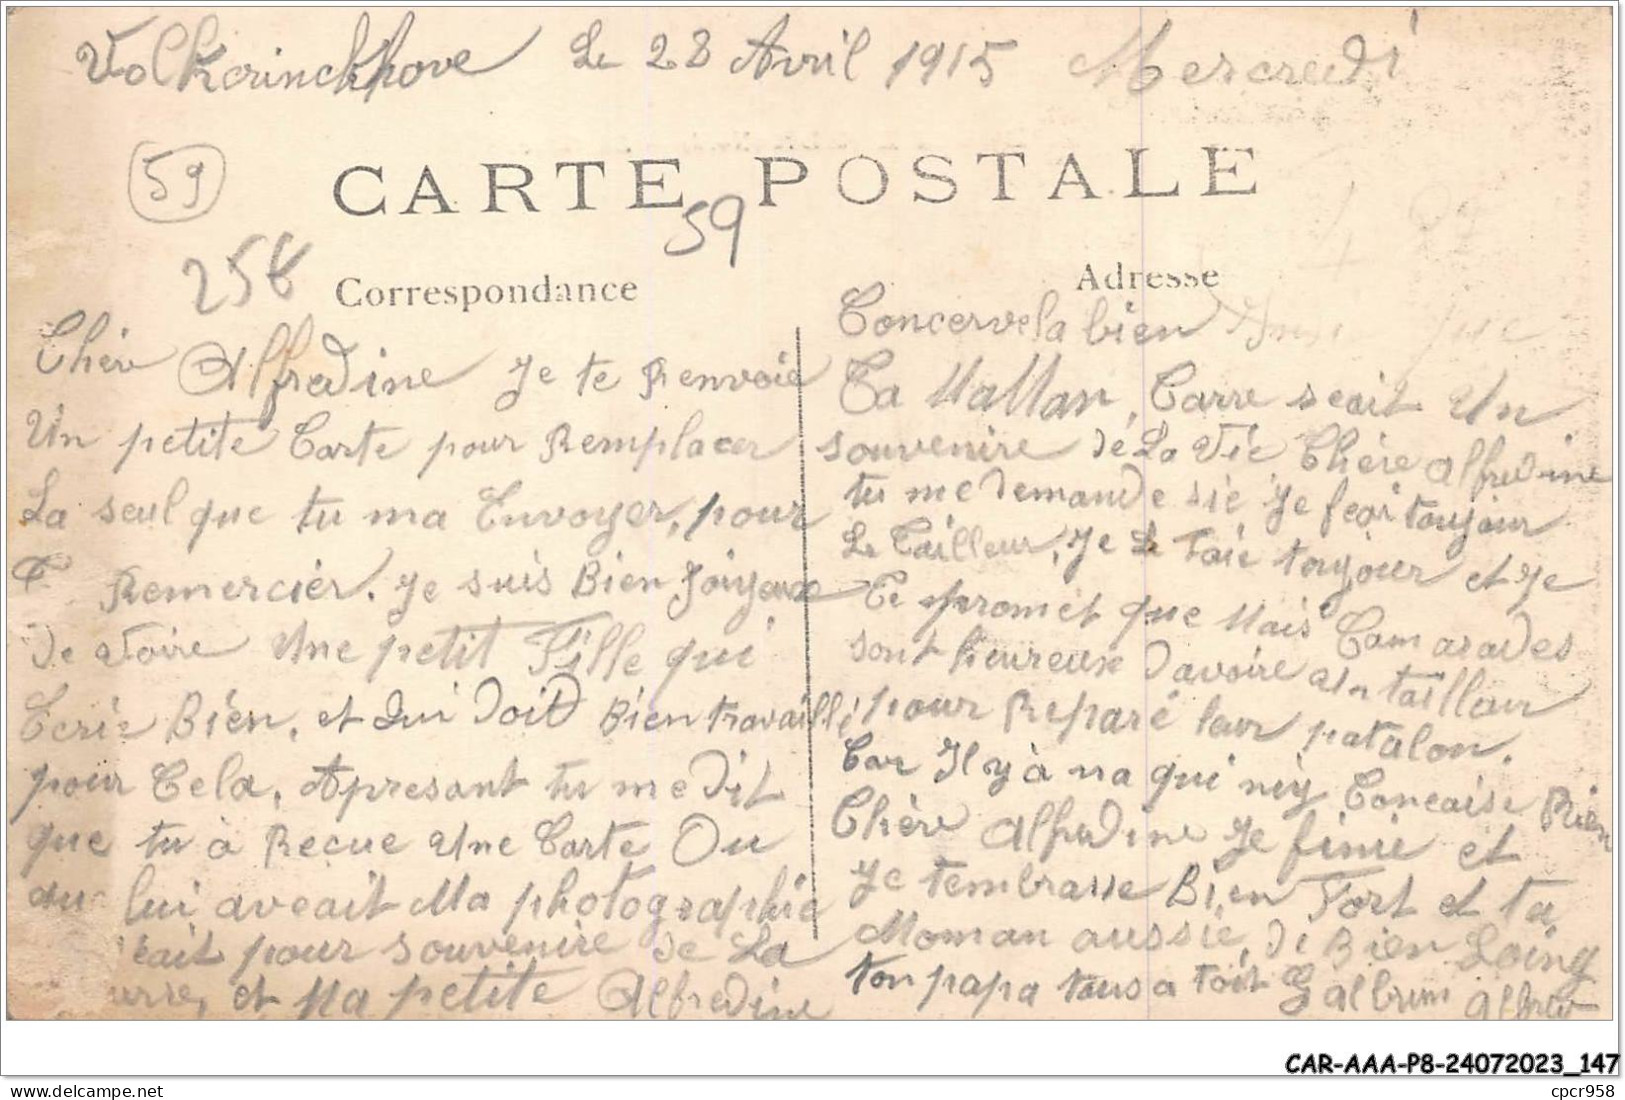 Volkerinckhove Le 28 Avril 1915 Mercredi
59
CARTE POSTALE
59
256
Correspondance
Adresse
Chèr Alfredine Je te Renvoie
Un petite Carte pour Remplacer
La seul que tu ma Envoyer, pour
T Remercièr. Je suis Bien Joiyeuxe
De avoire Une petit Fille qui
Ecrie Bièn, et Qui Doit Bien travaillé
pour Cela, Apresant tu me Dit
que tu à Recue Une Carte Ou
lui aveait Ma photographie
pour souvenire de La
et Ma petite Alfredine
Concervela bien
Ca Mallan, Carre seait Un
souvenire Dé La Vie Chère Alfredine
tu me Demande sie Je feai toujour
Le Tailleur, Je Le Faie toujour et Je
Te promèt que Mais Camarades
sont heureux Davoire Un taillour
pour Reparé leur patalon.
Car Il y à na qui niy Concaise Rien
Chère Alfredine Je finie et
Je tembrasse Bien Fort et ta
Moman aussie, De Bien Loing
ton papa tous a toit G album Albert
CAR-AAA-P8-24072023_147
cpcr958